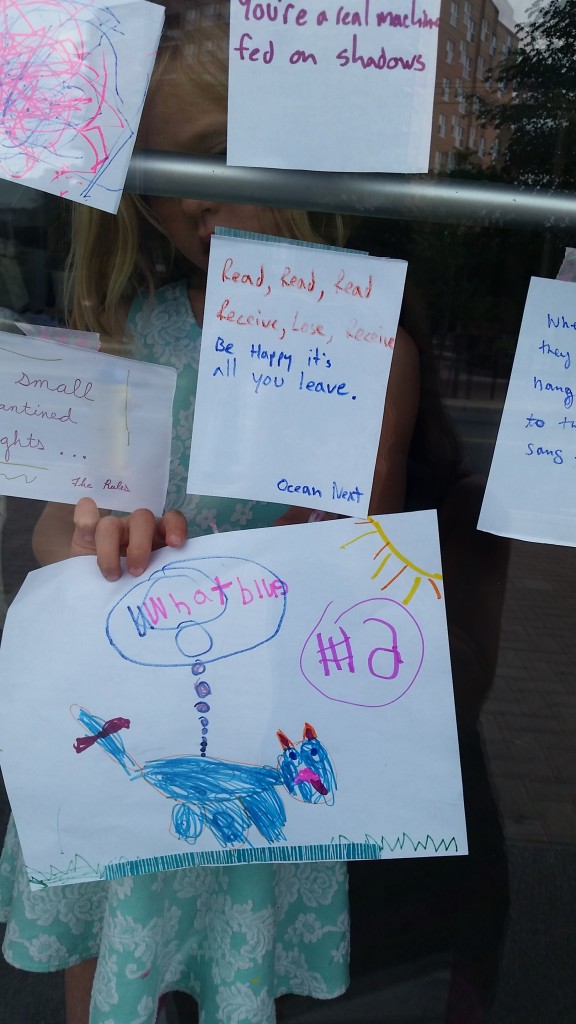 You're a real machine
fed on shadows
Read, Read, Read
Receive, Lose, Receive
Be Happy it's
All you leave.
Ocean Next
small
antined
ghts ...
The Rules
Whe
they
hang
to th
sang
What blus
#2